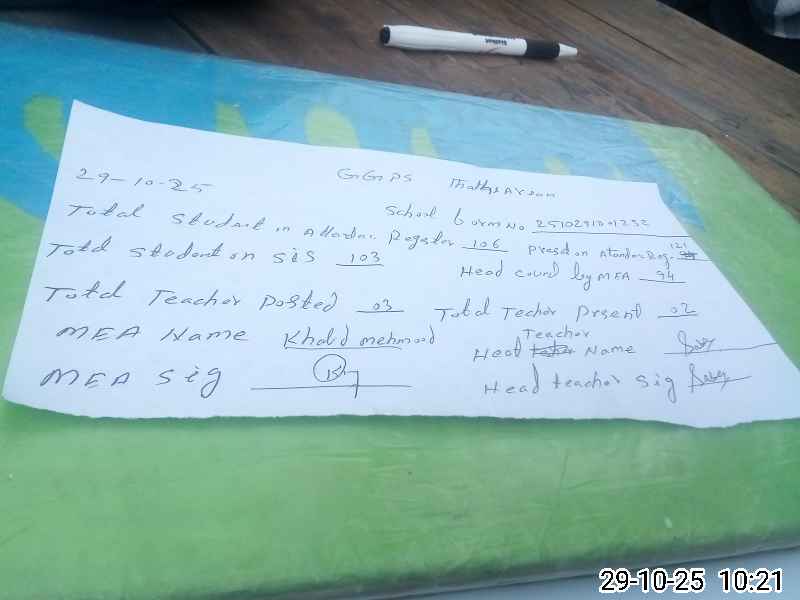 29-10-25 GGPS
School form No 251029101232
Total Student in Attendan. Register 106 Presd on Atandan Reg. 121
Totd Student on SIS 103
Head count by MEA 94
Totd Teacher posted 03 Totd Techer Prsent 02
MEA Name Khald mehmood
Head Teacher Name
MEA Sig
Head teacher Sig
29-10-25 10:21